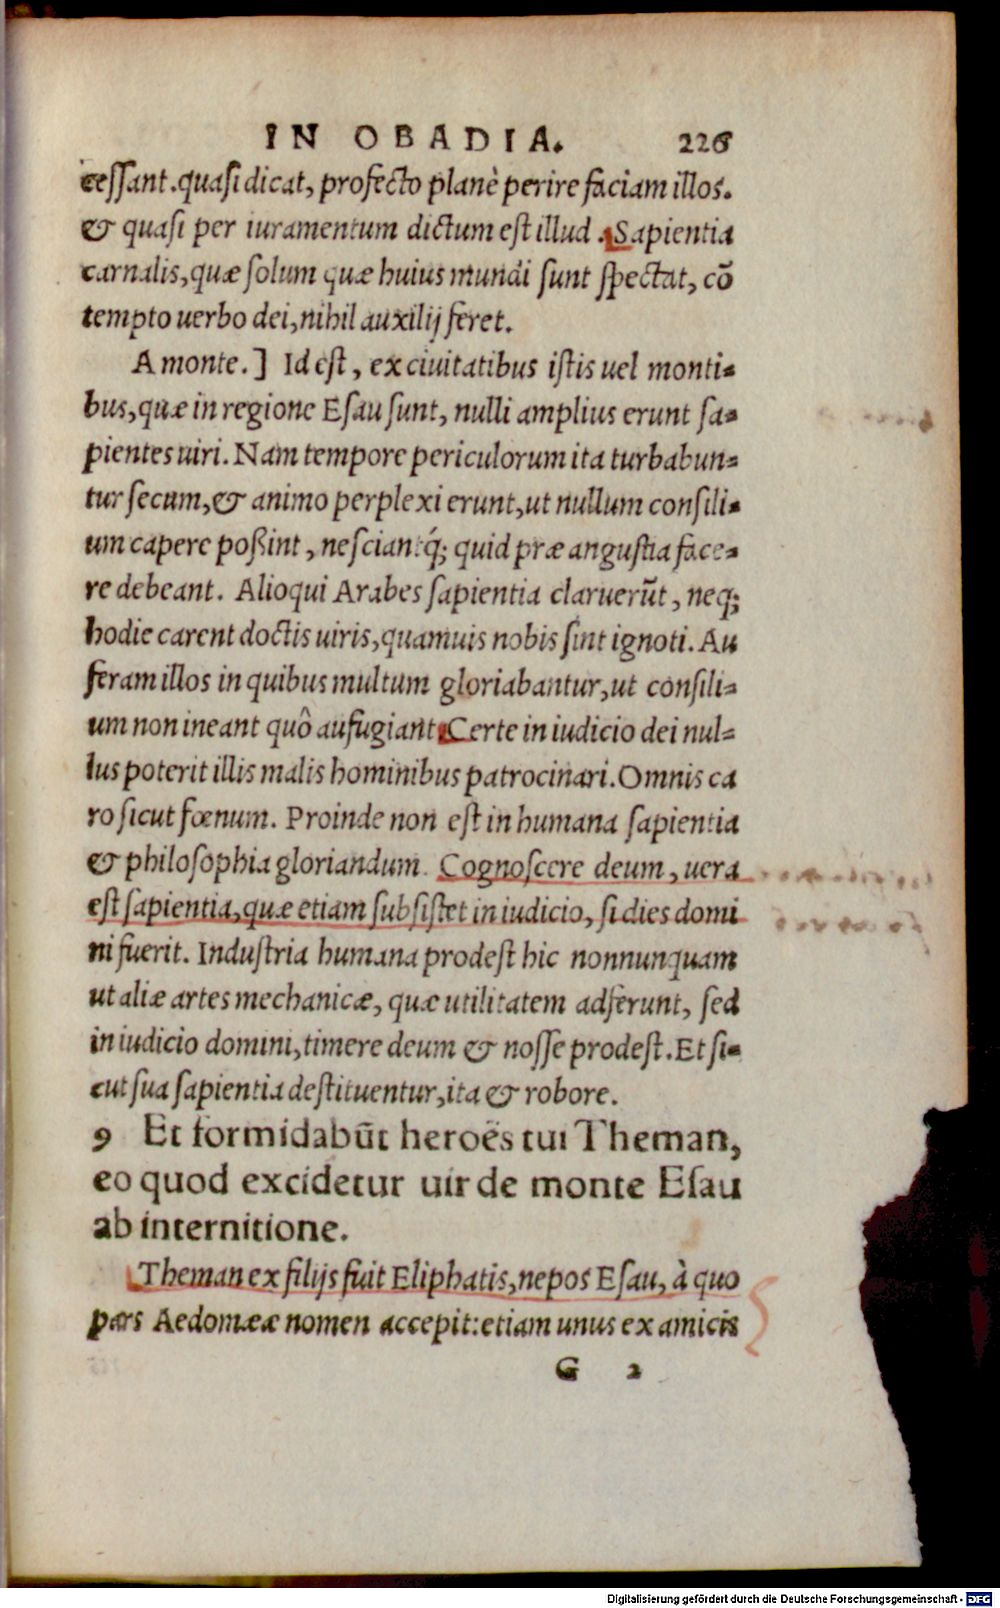 IN OBADIA. 226
cessant. quasi dicat, profecto planè perire faciam illos.
& quasi per iuramentum dictum est illud. Sapientia
carnalis, quæ solum quæ huius mundi sunt spectat, cō
tempto uerbo dei, nihil auxilij feret.
A monte.] Id est, ex ciuitatibus istis uel monti=
bus, quæ in regione Esau sunt, nulli amplius erunt sa=
pientes uiri. Nam tempore periculorum ita turbabun=
tur secum, & animo perplexi erunt, ut nullum consili=
um capere poßint, nesciantq́; quid præ angustia face=
re debeant. Alioqui Arabes sapientia claruerūt, neq;
hodie carent doctis uiris, quamuis nobis sint ignoti. Au
feram illos in quibus multum gloriabantur, ut consili=
um non ineant quô aufugiant. Certe in iudicio dei nul=
lus poterit illis malis hominibus patrocinari. Omnis ca
ro sicut fœnum. Proinde non est in humana sapientia
& philosophia gloriandum. Cognoscere deum, uera
est sapientia, quæ etiam subsistet in iudicio, si dies domi
ni fuerit. Industria humana prodest hic nonnunquam
ut aliæ artes mechanicæ, quæ utilitatem adferunt, sed
in iudicio domini, timere deum & nosse prodest. Et si=
cut sua sapientia destituentur, ita & robore.
9 Et formidabūt heroës tui Theman,
eo quod excidetur uir de monte Esau
ab internitione.
Theman ex filijs fuit Eliphatis, nepos Esau, à quo
pars Aedomææ nomen accepit: etiam unus ex amicis
G 2
Digitalisierung gefördert durch die Deutsche Forschungsgemeinschaft - DFG